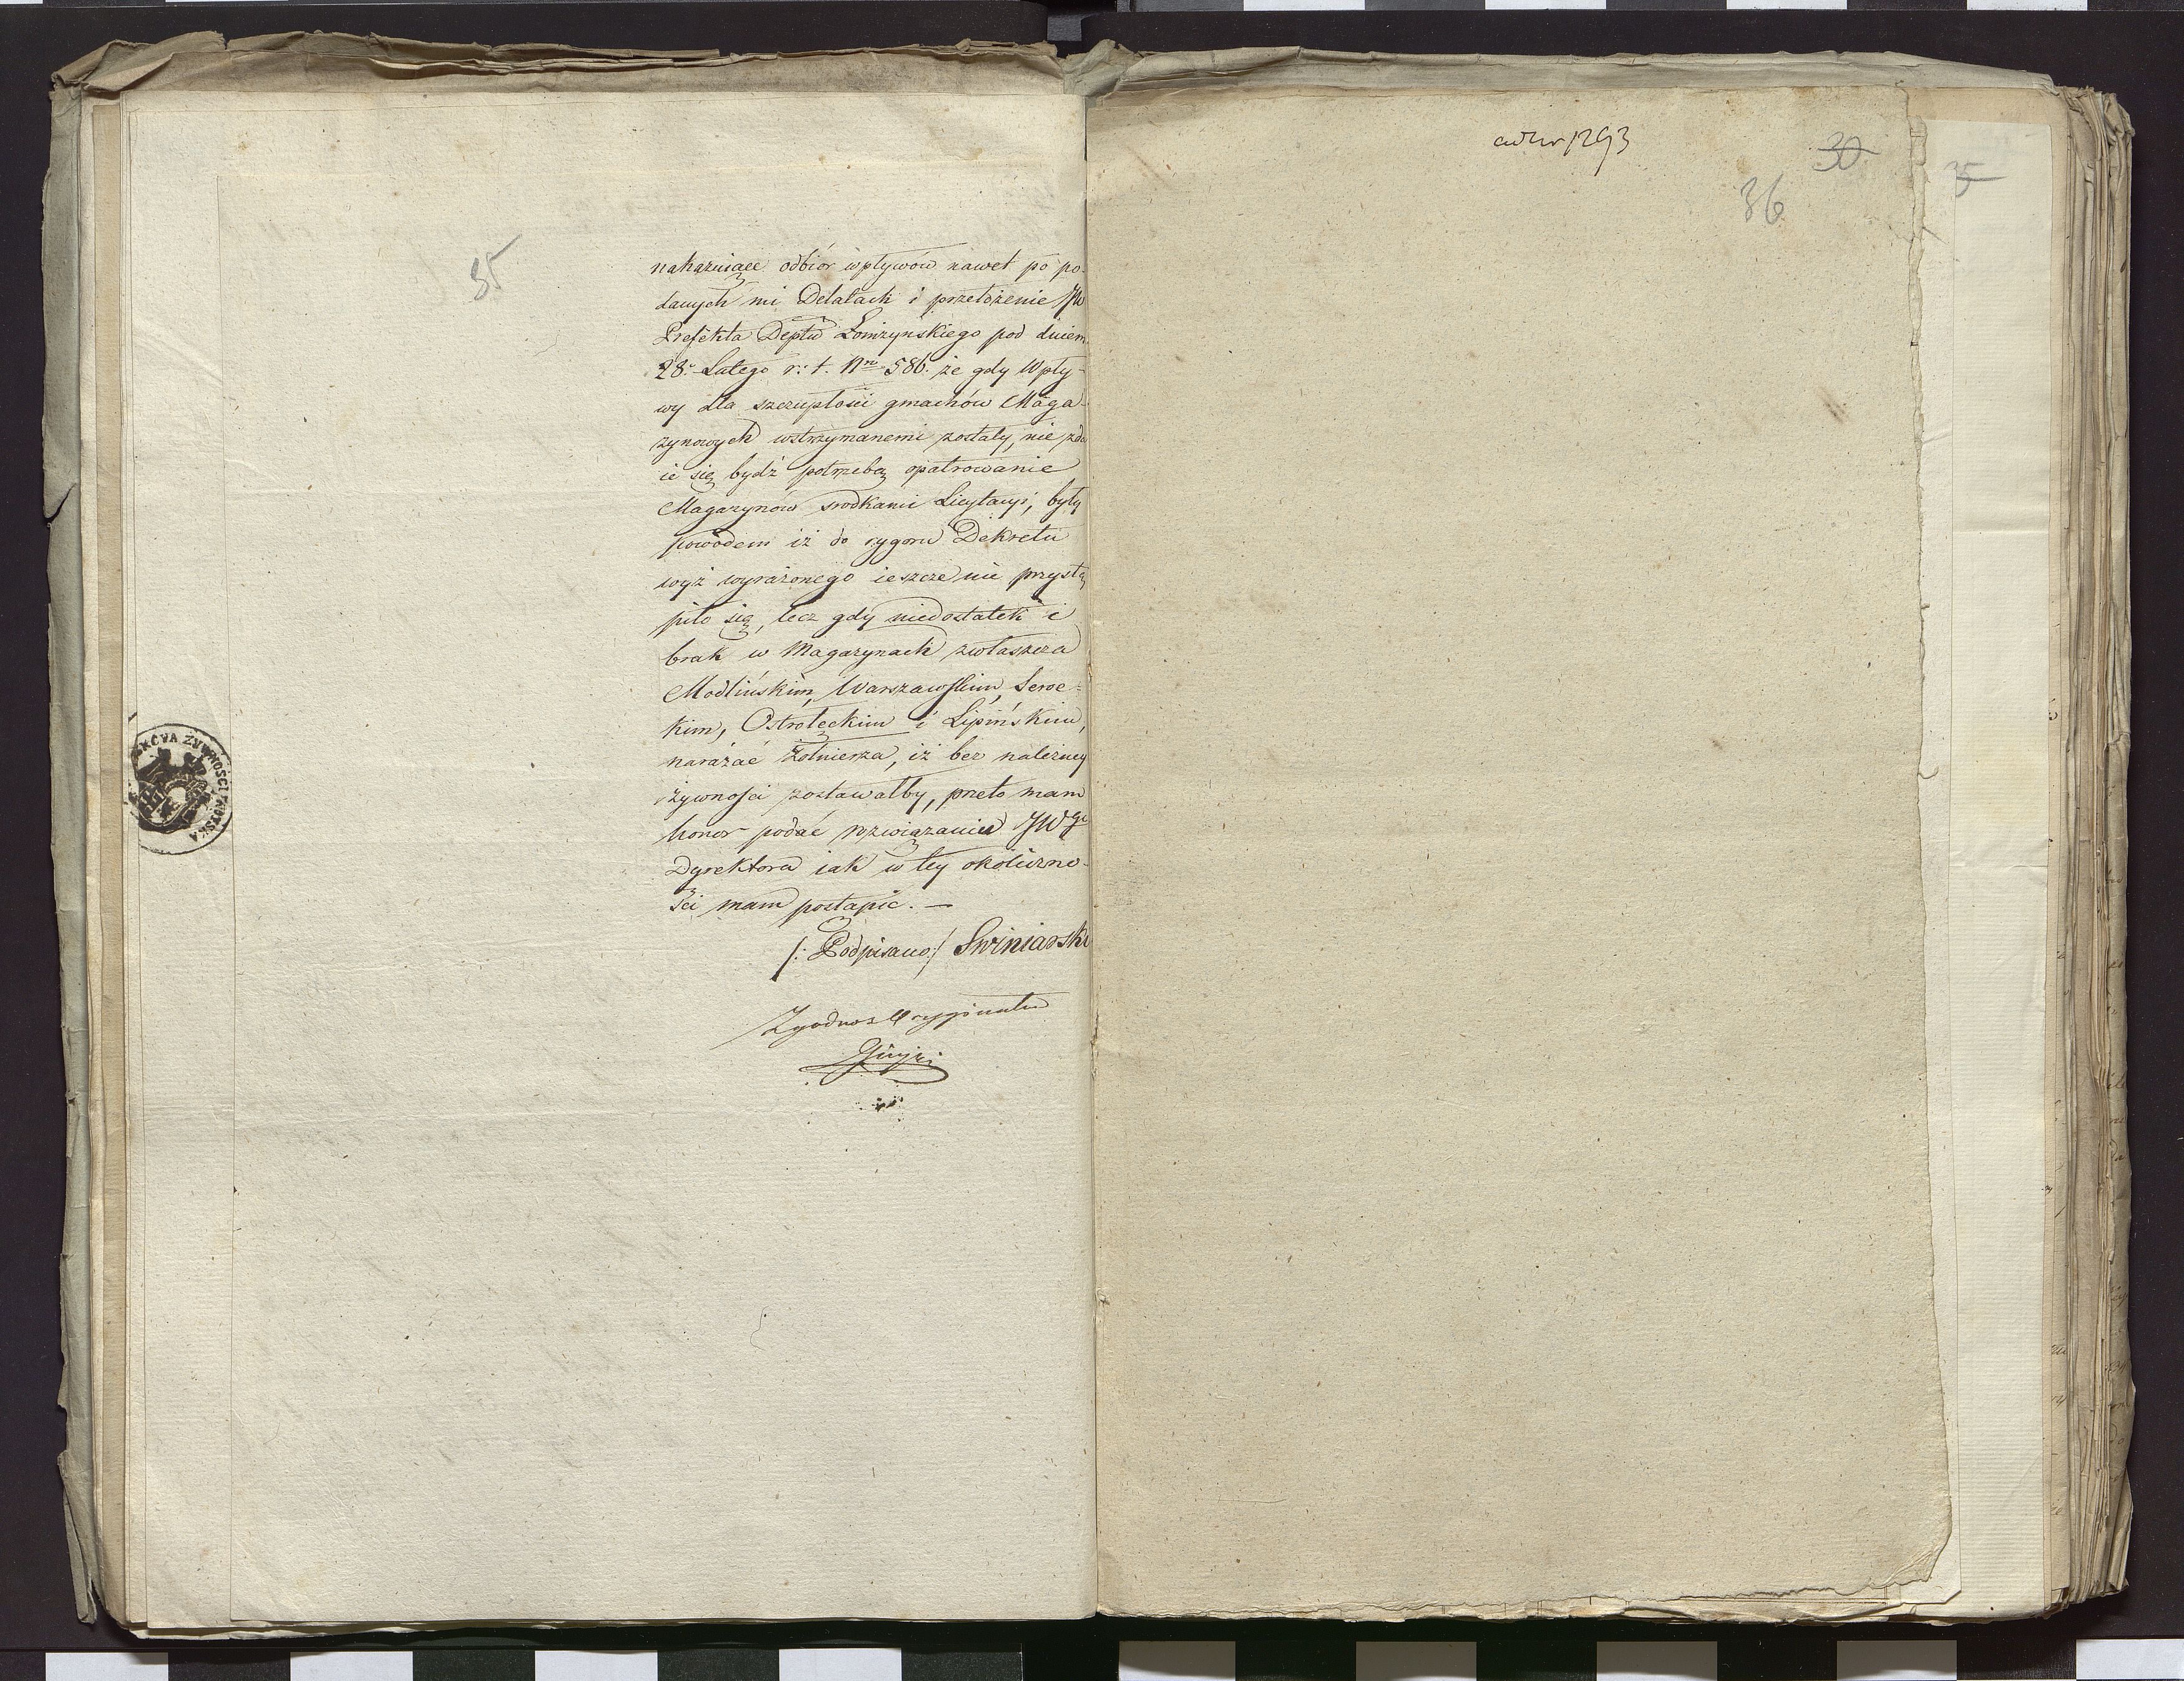 35
nakazuiące odbiór wpływów nawet po po-
danych mi Delatach i przełożenie JW
Prefekta Deptu Łomżynskiego pod dniem
28. Lutego r: t. Nro 586. że gdy Wpły-
wy dla szczupłości gmachów Maga-
zynowych wstrzymanemi zostały, nie zda
ie się bydź potrzebą opatrowanie
Magazynów srodkami Licytacyi, były
powodem iż do rygoru Dekretu
wyż wyrażonego ieszcze nie przystą
piło się, lecz gdy niedostatek i
brak w Magazynach zwłaszcza
Modlińskim, Warszawskim, Seroc-
kim, Ostrołęckim i Lipińskim,
narażać Żołnierza, iż bez należney
żywności zostawałby, przeto mam
honor podać rozwiązaniu JWgo
Dyrektora iak w tey okoliczno-
ści mam postąpić. —
/: Podpisano:/ Swiniarski
Zgodno z Oryginałem
ŻYWNOSCI
30
36
35